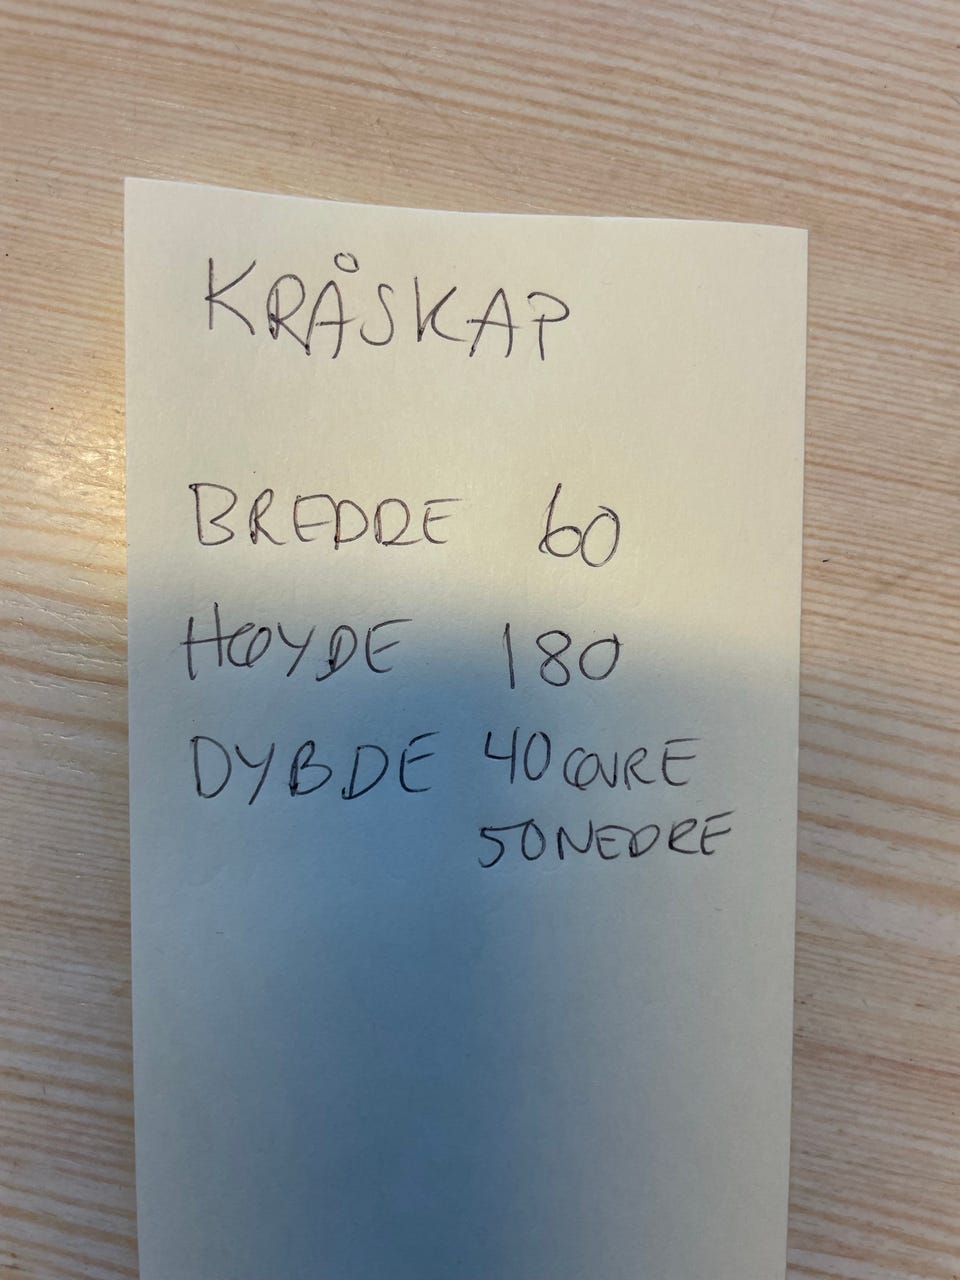 KRÅSKAP
BREDDE 60
HØYDE 180
DYBDE 40 ØVRE
50 NEDRE